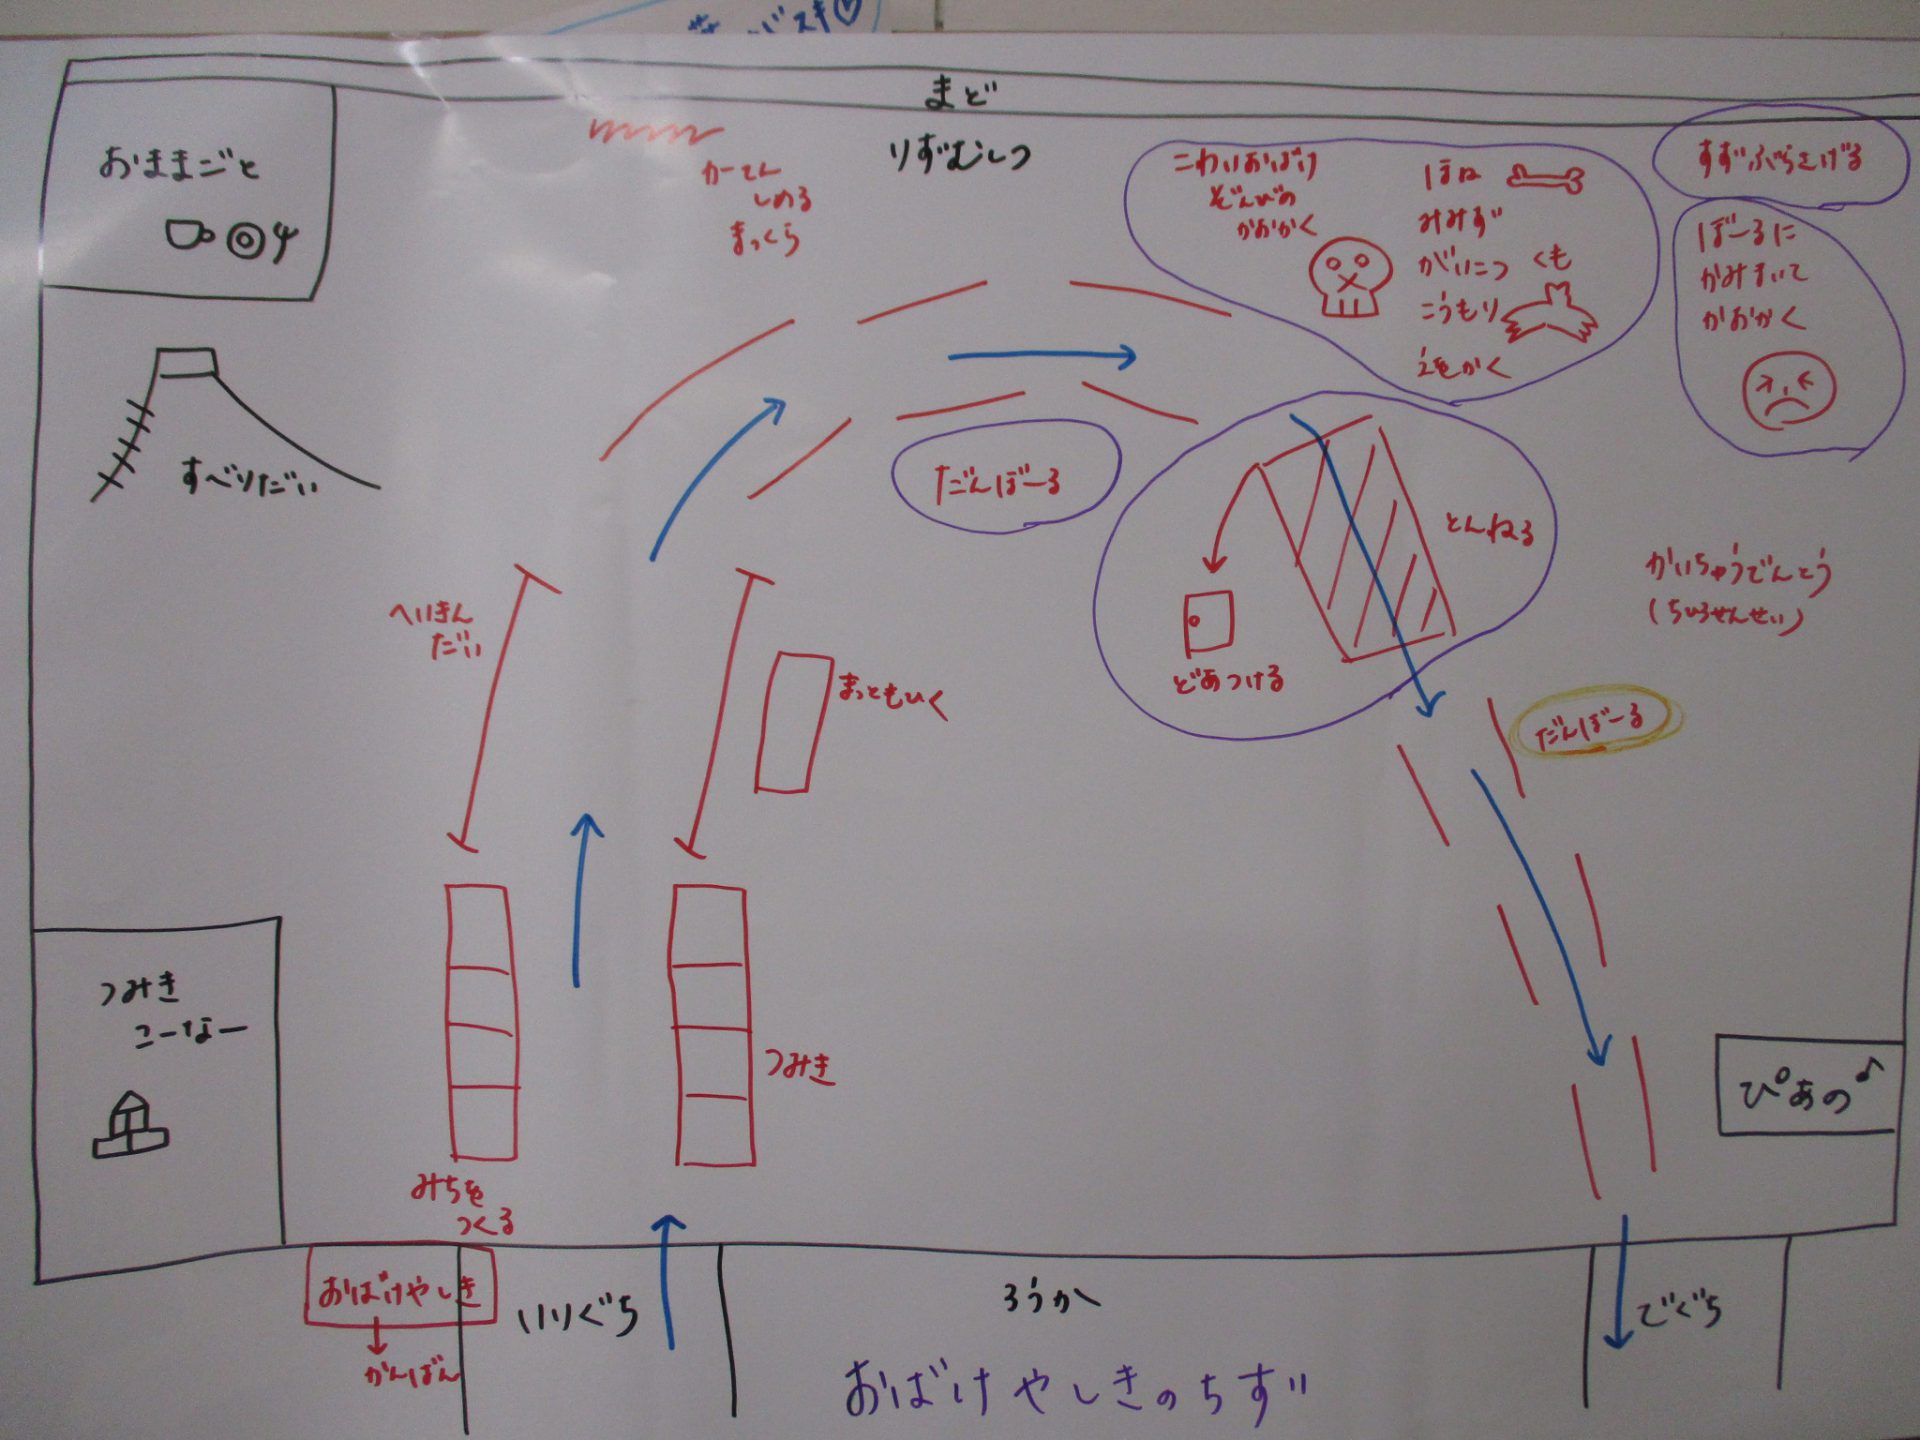 まど
りずむしつ
おままごと
すべりだい
つみき
こーなー
かーてん
しめる
まっくら
こわいおばけ
ぞんびの
かおかく
ほね
みみず
がいこつ くも
こうもり
えをかく
すずぶらさげる
ぼーるに
かみまいて
かおかく
だんぼーる
とんねる
どあつける
かいちゅうでんとう
(ちひろせんせい)
だんぼーる
へいきん
だい
まっともひく
つみき
みちを
つくる
ぴあの♪
おばけやしき
かんばん
いりぐち
ろうか
でぐち
おばけやしきのちず